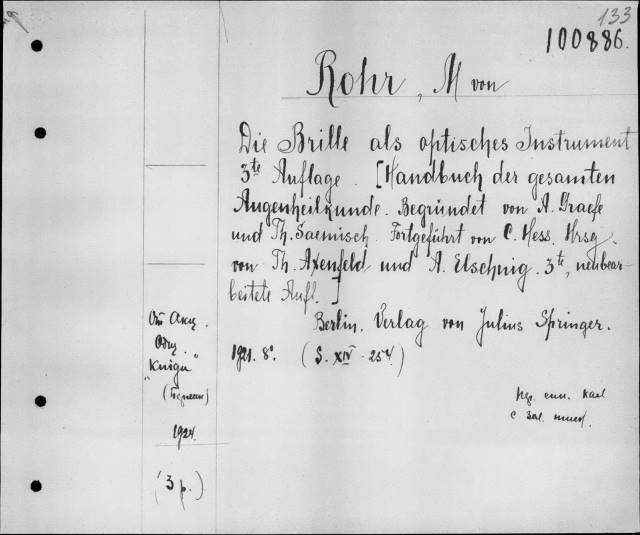 133
100886.
Rohr, M von
Die Brille als optisches Instrument
3te Auflage. [Handbuch der gesamten
Augenheilkunde. Begründet von A. Graefe
und Th. Saemisch. Fortgeführt von C. Hess. Hrsg.
von Th. Axenfeld und A. Elschnig. 3te, neubear-
beitete Aufl.]
Berlin. Verlag von Julius Springer.
1921. 8°. (S. XIV - 254.)
От Акц.
Общ.
"Книга"
1924.
(3 р.)